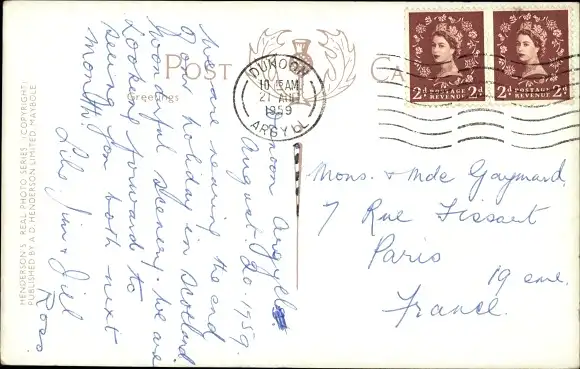 POST CARD
Greetings
DUNOON
10 15 AM
21 AUG
1959
ARGYLL
2D POSTAGE REVENUE 2D
2D POSTAGE REVENUE 2D
Dunoon Argyll.
August. 20. 1959.
We are nearing the end
of our holiday in Scotland.
Wonderful scenery. We are
looking forward to
seeing you both next
month.
Lilo, Jim & Jill
Ross.
Mons. & Mde Gaymard.
7 Rue Tissart
Paris
19 eme.
France.
HENDERSON'S REAL PHOTO SERIES (COPYRIGHT)
PUBLISHED BY A.D. HENDERSON LIMITED, MAYBOLE